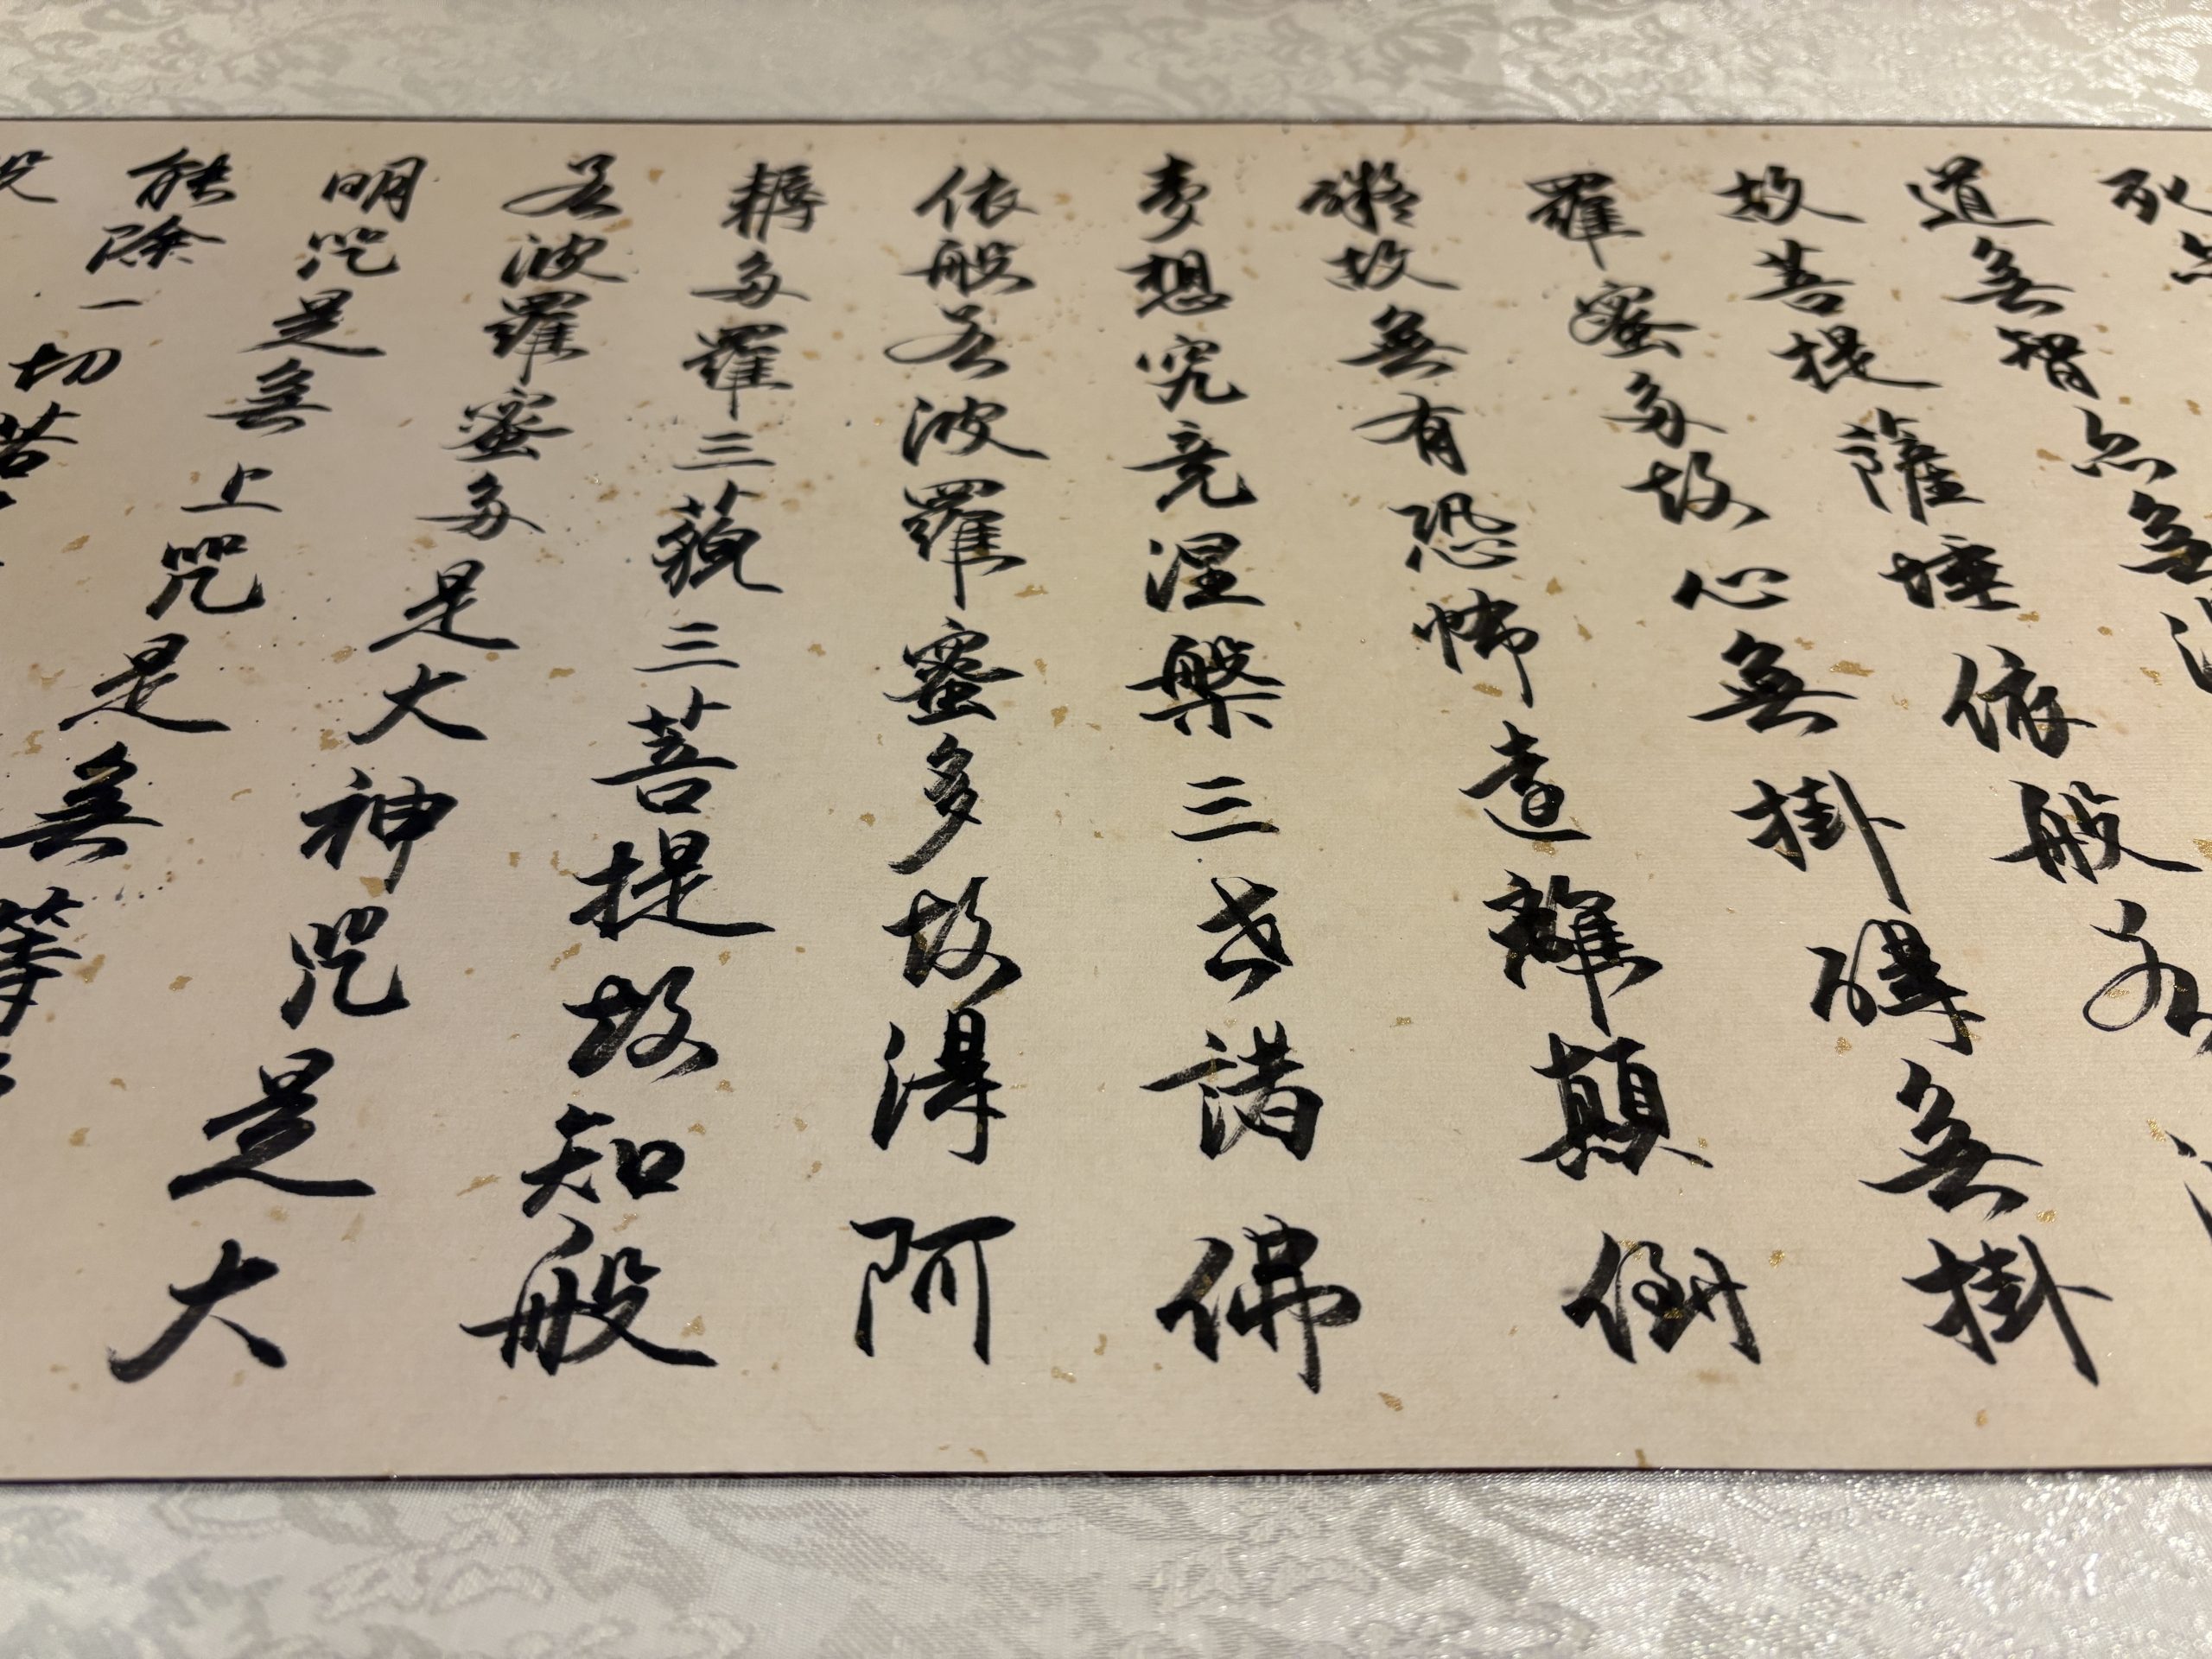 死亦
道無智亦無
故菩提薩埵依般若
羅蜜多故心無掛礙無掛
礙故無有恐怖遠離顛倒
夢想究竟涅槃三世諸佛
依般若波羅蜜多故得阿
耨多羅三藐三菩提故知般
若波羅蜜多是大神咒是大
明咒是無上咒是無等
能除一切苦